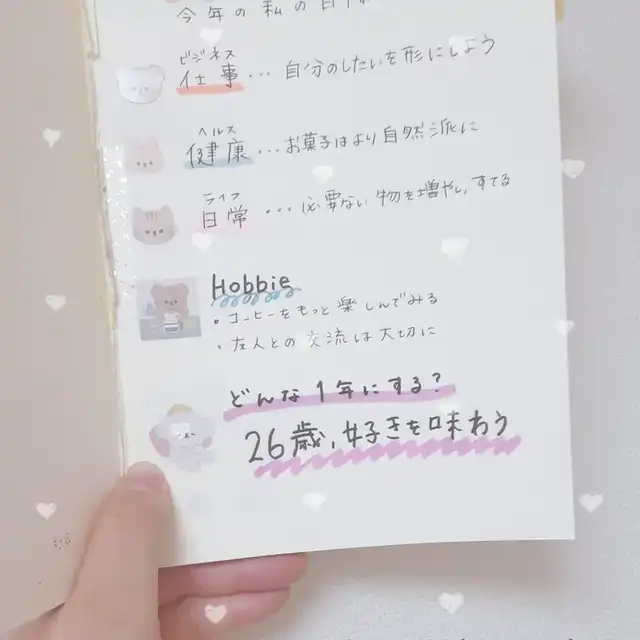 今年の私の目標
ビジネス
仕事…自分のしたいを形にしよう
ヘルス
健康…お菓子はより自然派に
ライフ
日常…必要ない物を増やし、すてる
Hobbie
・コーヒーをもっと楽しんでみる
・友人との交流は大切に
どんな1年にする?
26歳、好きを味わう